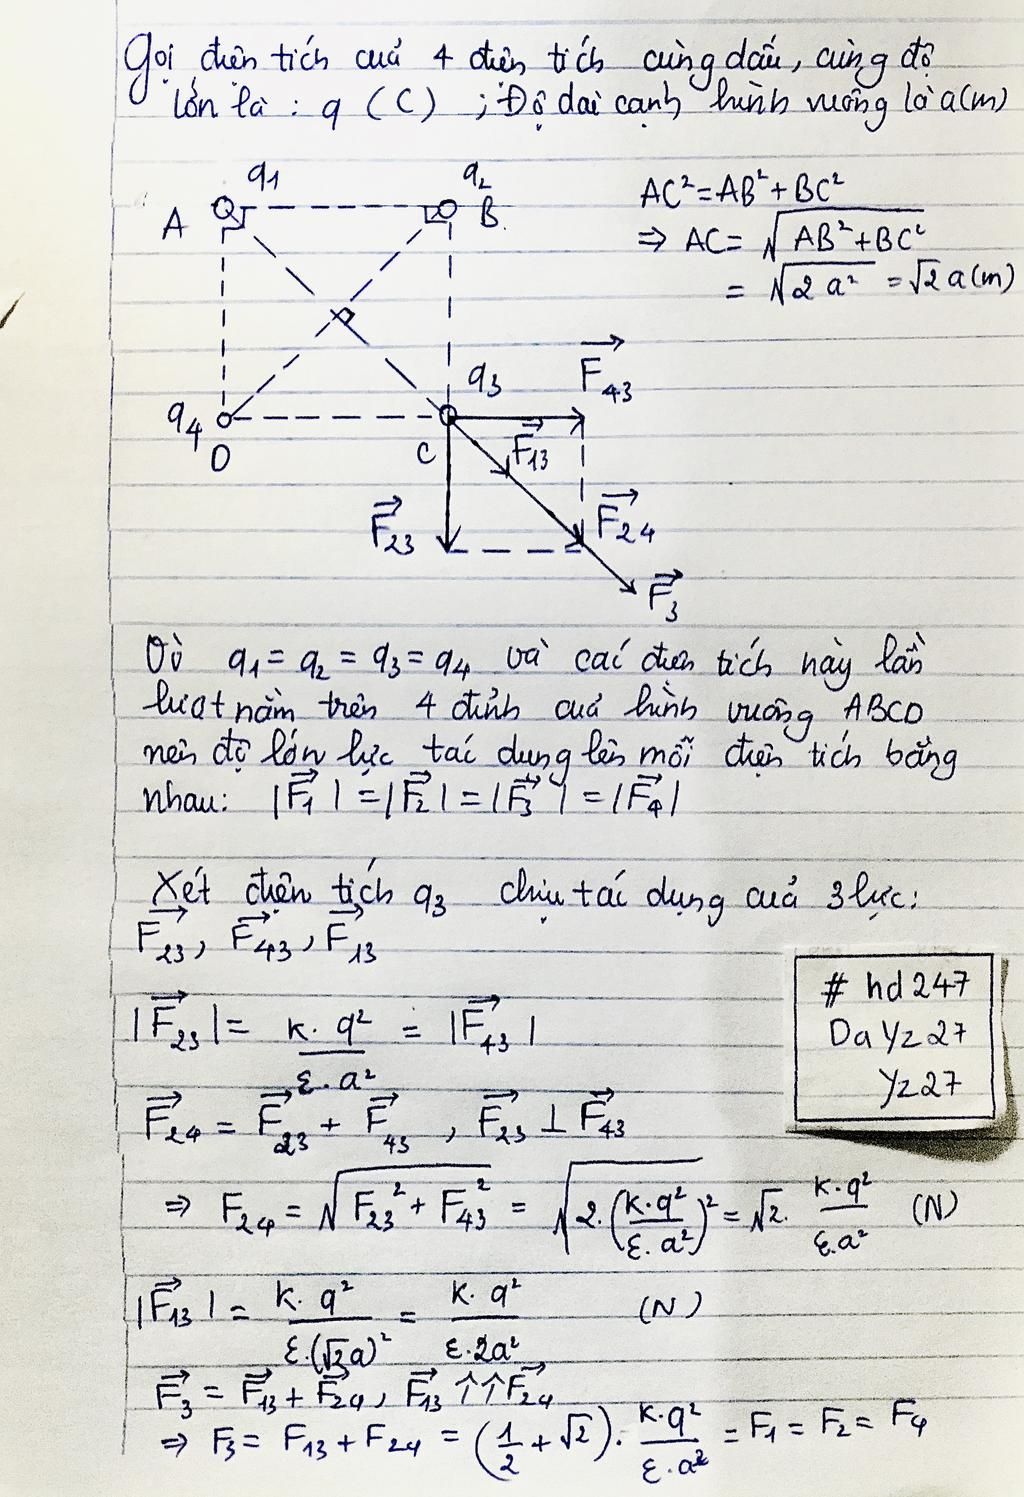 Gọi điện tích của 4 điện tích cùng dấu, cùng độ
lớn là : q (C) ; Độ dài cạnh hình vuông là a(m)
q1 q2
A B
AC² = AB² + BC²
⇒ AC = √(AB² + BC²)
= √(2a²) = √2 a(m)
q3 F⃗43
q4 D C F⃗13
F⃗23 F⃗24
F⃗3
Vì q1 = q2 = q3 = q4 và các điện tích này lần
lượt nằm trên 4 đỉnh của hình vuông ABCD
nên độ lớn lực tác dụng lên mỗi điện tích bằng
nhau: |F⃗1| = |F⃗2| = |F⃗3| = |F⃗4|
Xét điện tích q3 chịu tác dụng của 3 lực:
F⃗23, F⃗43, F⃗13
# hd247
DaYz27
Yz27
|F⃗23| = k.q²/(ε.a²) = |F⃗43|
F⃗24 = F⃗23 + F⃗43 , F⃗23 ⊥ F⃗43
⇒ F24 = √(F23² + F43²) = √(2.(k.q²/(ε.a²))²) = √2. k.q²/(ε.a²) (N)
|F⃗13| = k.q²/(ε.(√2a)²) = k.q²/(ε.2a²) (N)
F⃗3 = F⃗13 + F⃗24, F⃗13 ↑↑ F⃗24
⇒ F3 = F13 + F24 = (1/2 + √2). k.q²/(ε.a²) = F1 = F2 = F4